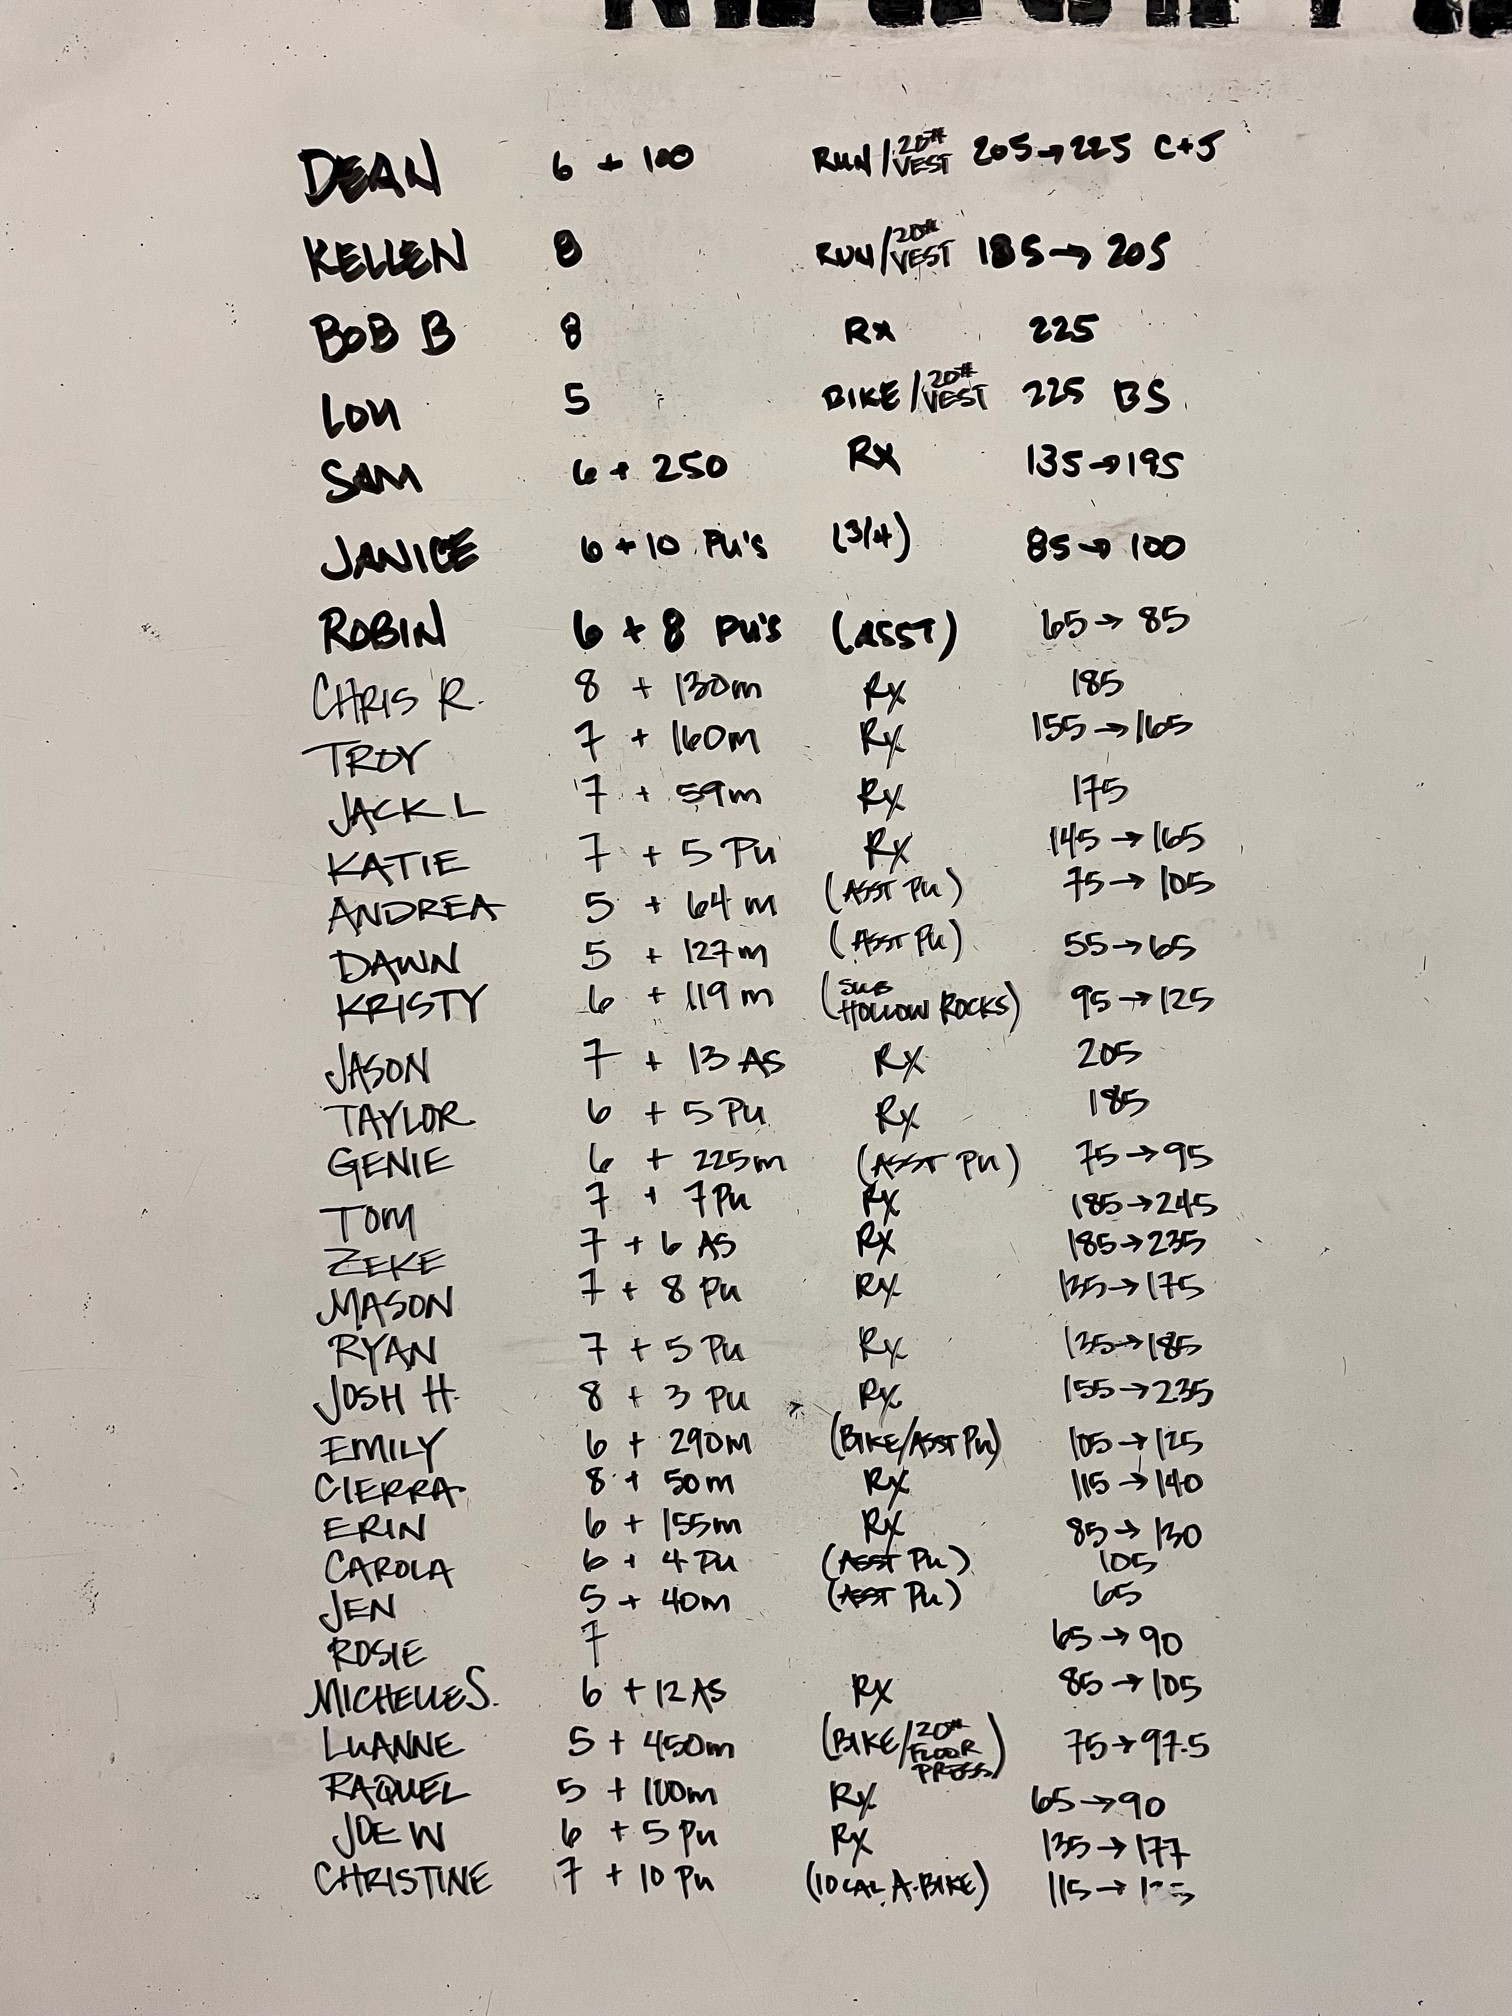 DEAN 6 + 100 RUN/20# VEST 205→225 C+J
KELLEN 8 RUN/20# VEST 185→205
BOB B 8 Rx 225
LOU 5 BIKE/20# VEST 225 BS
SAM 6 + 250 Rx 135→195
JANICE 6 + 10 PU'S (3/4) 85→100
ROBIN 6 + 8 PU'S (ASST) 65→85
CHRIS R. 8 + 130m Rx 185
TROY 7 + 160m Rx 155→165
JACK L 7 + 59m Rx 175
KATIE 7 + 5 PU Rx 145→165
ANDREA 5 + 64m (ASST PU) 75→105
DAWN 5 + 127m (ASST PU) 55→65
KRISTY 6 + 119m (SUB HOLLOW ROCKS) 95→125
JASON 7 + 13 AS Rx 205
TAYLOR 6 + 5 PU Rx 185
GENIE 6 + 225m (ASST PU) 75→95
TOM 7 + 7 PU Rx 185→245
ZEKE 7 + 6 AS Rx 185→235
MASON 7 + 8 PU Rx 135→175
RYAN 7 + 5 PU Rx 135→185
JOSH H. 8 + 3 PU Rx 155→235
EMILY 6 + 290m (BIKE/ASST PU) 105→125
CIERRA 8 + 50m Rx 115→140
ERIN 6 + 155m Rx 85→130
CAROLA 6 + 4 PU (ASST PU) 105
JEN 5 + 40m (ASST PU) 65
ROSIE 7 65→90
MICHELLE S. 6 + 12 AS Rx 85→105
LUANNE 5 + 450m (BIKE/20# FLOOR PRESS) 75→97.5
RAQUEL 5 + 100m Rx 65→90
JOE W 6 + 5 PU Rx 135→177
CHRISTINE 7 + 10 PU (10 CAL A-BIKE) 115→